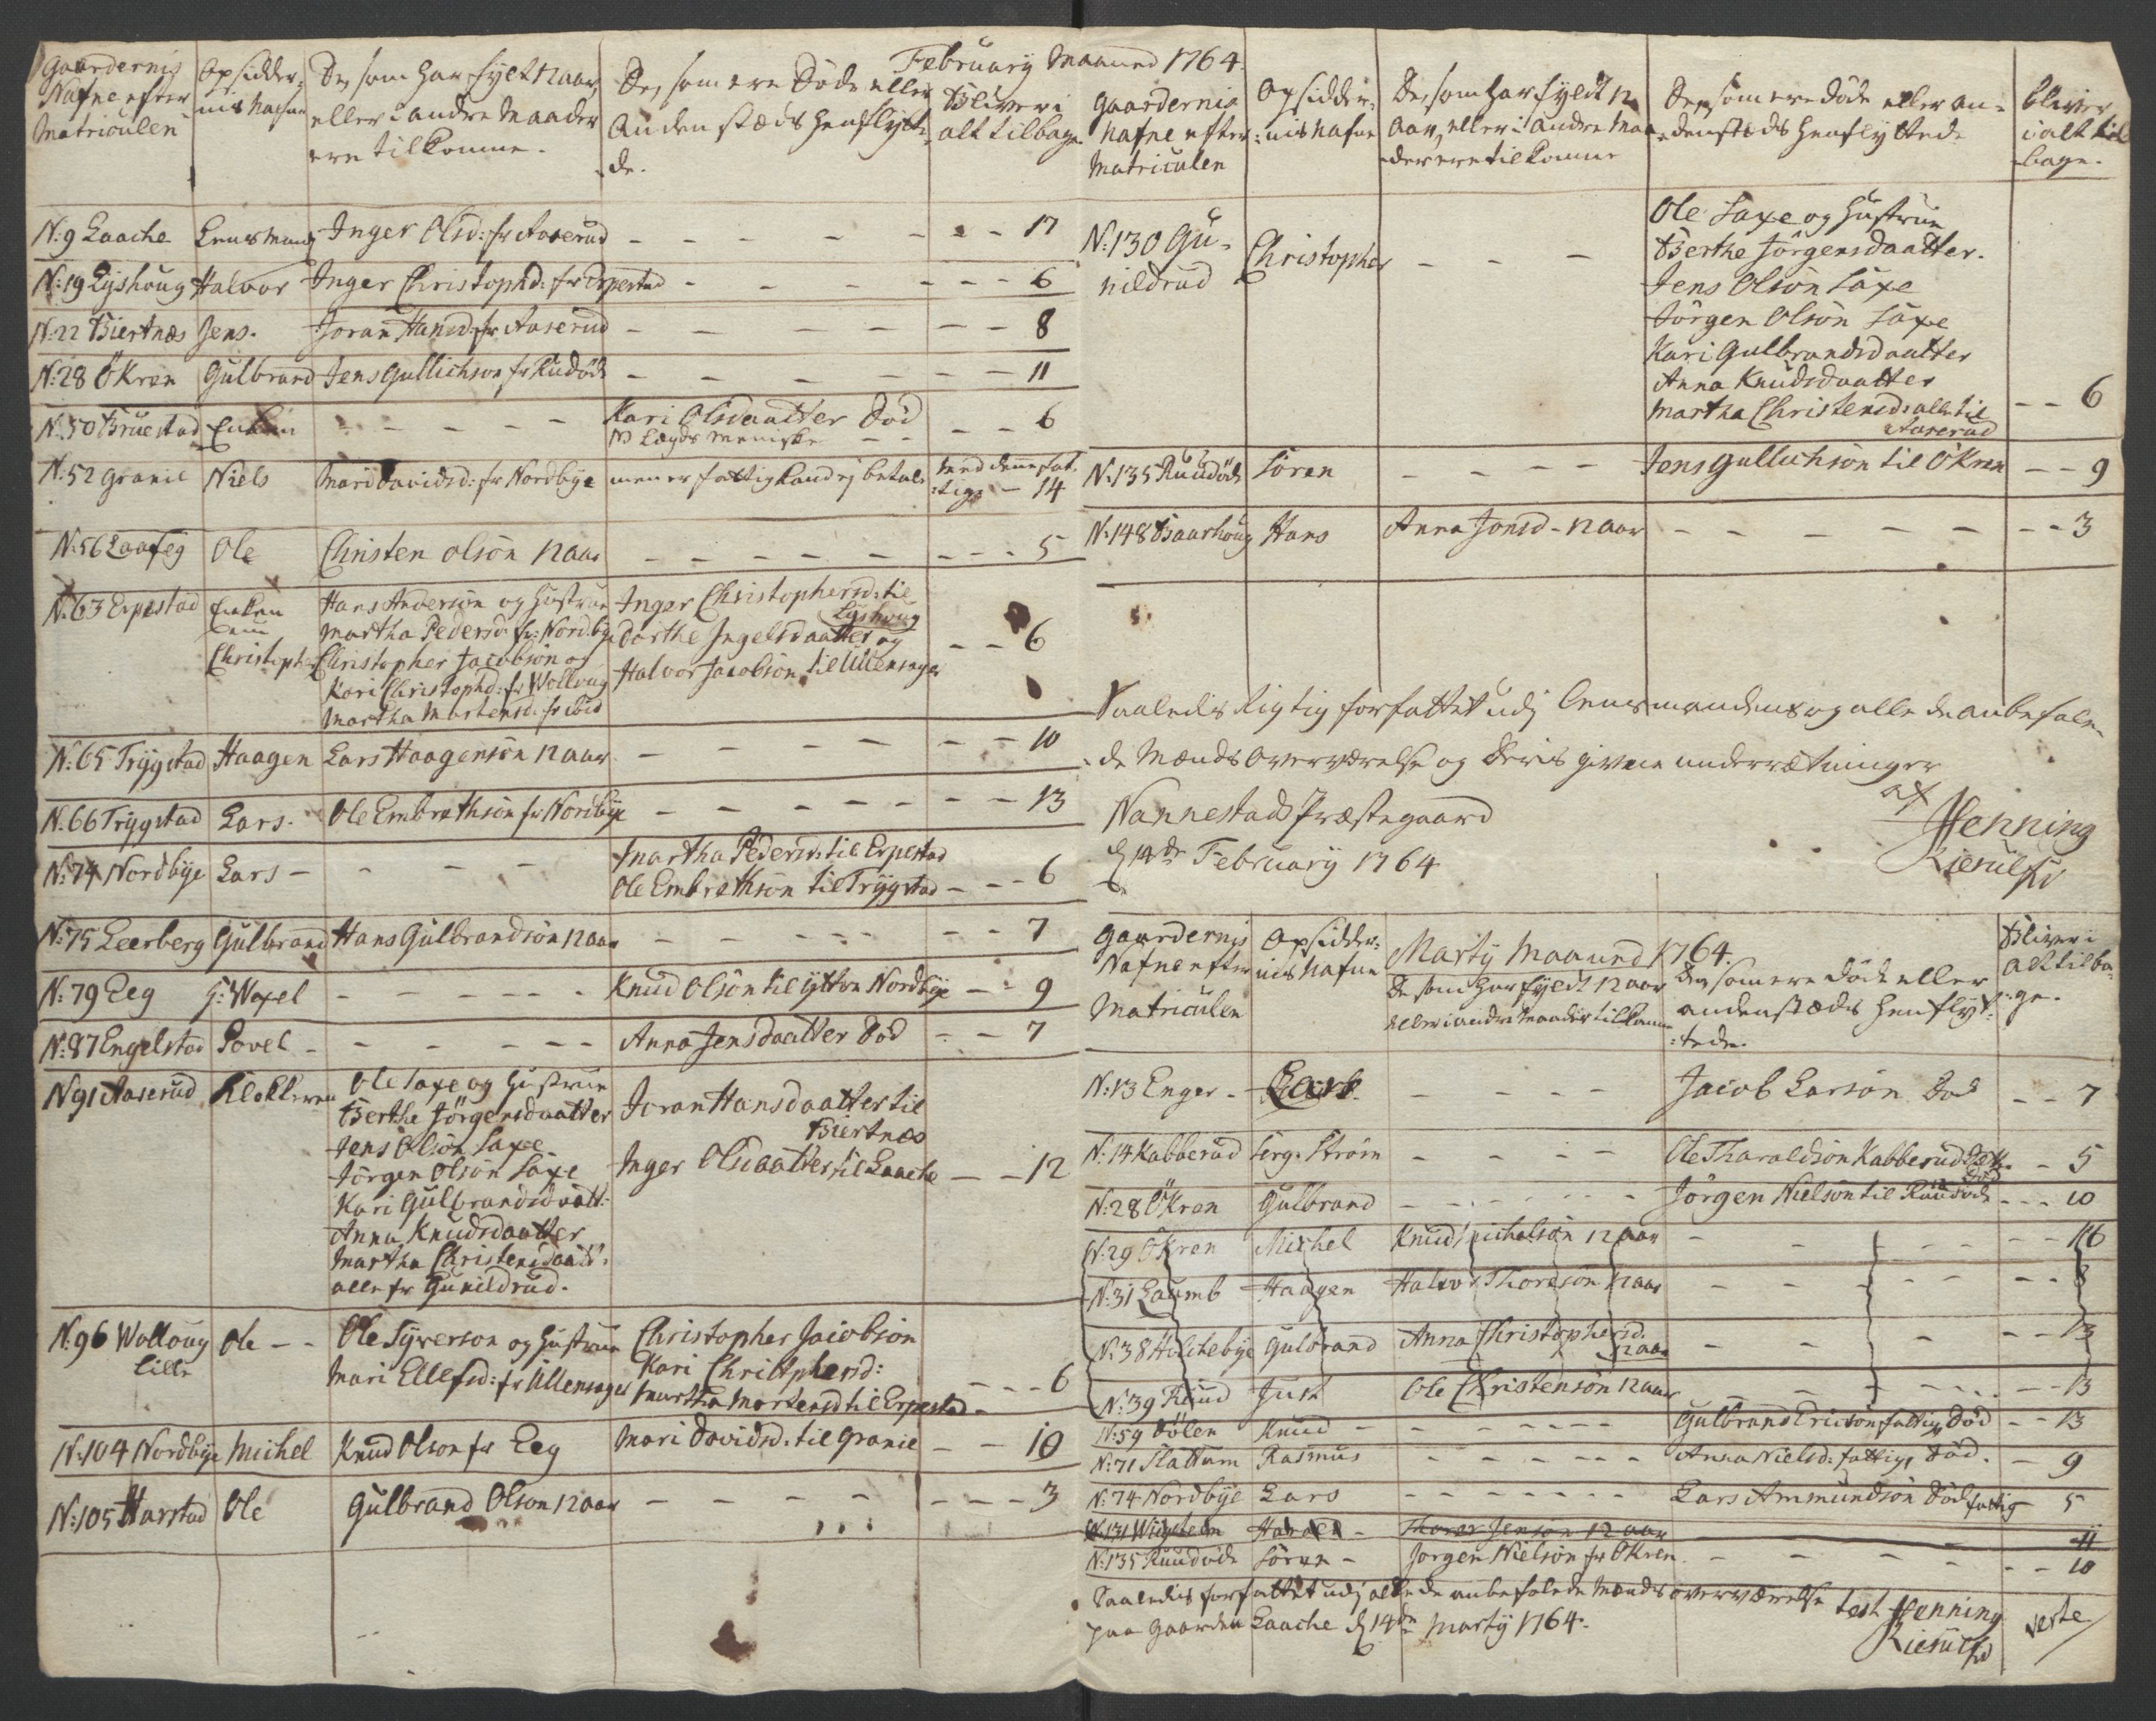 February Maaned 1764.
Gaardernis Nafne efter Matriculen | Opsidder-nis Nafne | De, som har fylt 12 aar, eller i andre Maader ere tilkomne. | De, som ere Døde eller Anden stæds henflytte-de. | Bliver i alt tilbage
N: 9 Laache | Lensmand | Inger Olsd: fr Aaserud | - - - - | 17
N: 19 Lyshoug | Halvor | Inger Christophd: fr Erpestad | - - - | 6
N: 22 Biertnæs | Jens. | Joran Hansd: fr Aaserud | - - - - | 8
N: 28 Økren | Gulbrand | Jens Gullichson fr Rudøde | - - - - | 11
N. 50 Bruestad | Enken | - - - - | Kari Olsdaatter Død | 6
NB Lægds Meniske
N: 52 Granie | Niels | Mari Davidsd: fr Nordbye | men er fattig kand ej betale | med denne fat-tige - 14
N: 56 Laafeg | Ole | Christen Olsøn 12 aar | - - - - | 5
N: 63 Erpestad | Enken
nu
Christopher | Hans Anderson og Hustrue
Martha Pedersd fr: Nordbye
Christopher Jacobsøn og
Kari Christophd: fr Wolloug
Martha Mortensd. fr ibid | Inger Christophersd: til
Lyshoug
Dorthe Ingelsdaatter og
Halvor Jacobsøn til Ullensager | 6
N: 65 Trygstad | Haagen | Lars Haagensøn 12 aar | - - - - | 10
N. 66 Trygstad | Lars. | Ole Embrethsøn fr Nordbye | - - - - | 13
N: 74 Nordbye | Lars | - - - | Martha Pedersd: til Erpestad
Ole Embrethsøn til Trygstad | 6
N: 75 Leerberg | Gulbrand | Hans Gulbrandsøn 12 aar | - - - - | 7
N: 79 Eeg | H: Woxel | - - - - | Knud Olsøn til Nordbye | 9
N: 87 Engelstad | Povel | - - - - | Anna Jensdaatter Død | 7
N 91 Aaserud | Klokkeren | Ole Saxe og Hustrue
Berthe Jørgensdaatter
Jens Olsøn Saxe
Jørgen Olsøn Saxe
Kari Gulbrandsdaatt:
Anna Knudsdaatter
Martha Christensdaatt:
alle fr Gunildrud. | Joran Hansdaatter til
Biertnæs
Inger Olsdaatter til Laache | 12
N: 96 Wolloug
lille | Ole | Ole Syverson og Hustrue
Mari Ellefsd: fr Ullensager | Christopher Jacobsøn
Kari Christophersd:
Martha Mortensd til Erpestad | 6
N: 104 Nordbye | Michel | Knud Olson fr Eeg | Mari Davidsd: til Granie | 10
N: 105 Harstad | Ole | Gulbrand Olson 12 aar | - - - - | 3
Gaardernis Nafne efter Matriculen | Opsidder-nis Nafne | De, som har fyldt 12 Aar, eller i andre Maa-der ere tilkomne | De, som ere døde eller an-denstæds henflyttede | bliver i alt til-bage.
N: 130 Gu-
nildrud | Christopher | - - - | Ole Saxe og Hustrue
Berthe Jørgensdaatter.
Jens Olsøn Saxe
Jørgen Olsøn Saxe
Kari Gulbrandsdaatter
Anna Knudsdaatter
Martha Christensd: alle til
Aaserud | 6
N: 135 Ruudøde | Søren | - - - - | Jens Gullichsøn til Økren | 9
N: 148 Baarhoug | Hans | Anna Jonsd - 12 aar | - - - - | 3
Saaledis Rigtig forfattet udj Lensmandens og alle de anbefale-
de Mænds Overværelse og Deris givne underrætninger
af
Nannestads Præstegaard
d 14de February 1764
Henning
Kierulf
Marty Maaned 1764.
Gaardernis Nafne efter Matriculen | Opsidder-nis Nafne | De som har fyldt 12 aar eller i andre Maader tilkomne | De, som ere døde eller andenstæds henflyt-tede. | Bliver i alt tilba-ge.
N: 13 Enger | Lars | - - - | Jacob Larsøn Død | 7
N: 14 Kabberud | Serg. Strøm | - - - - | Ole Tharaldsøn Kabberud død | 5
N: 28 Økren | Gulbrand | - - - - | Jørgen Nielsøn til Ruudøde | 10
N: 29 Økren | Michel | Knud Michelsøn 12 aar | - - - | 16
N: 31 Laumb | Haagen | Halvor Thoresøn 12 aar | - - - | 8
N: 38 Holtebye | Gulbrand | Anna Christophersd. 12 aar | - - - | 13
N: 39 | Just | Ole Christensøn 12 aar | - - - | 13
N: 59 Dølen | Knud | - - - - | Gulbrand Ericson fattig Død | 13
N: 71 Slattum | Rasmus | - - - - | Anna Nielsd: fattig, Død. | 9
N: 74 Nordbye | Lars | - - - - | Lars Ammundsøn Død fattig | 5
N: 131 Wigstein | | Thorer Jensøn 12 aar | | 11
N: 135 Ruudøde | Søren | Jørgen Nielsøn fr Økren. | - - - - | 10
Saaledis forfattet udj alle de anbefalede Mænds overværelse
paa Gaarden Laache d 14de Marty 1764.
test Henning
Kierulf
verte